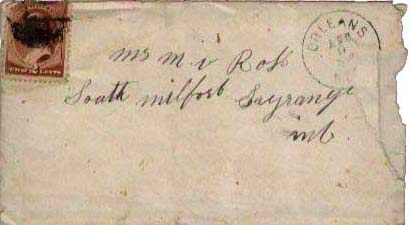 TWO CENTS
ORLEANS
APR
ms M v Ross
South milford Lagrange
ind